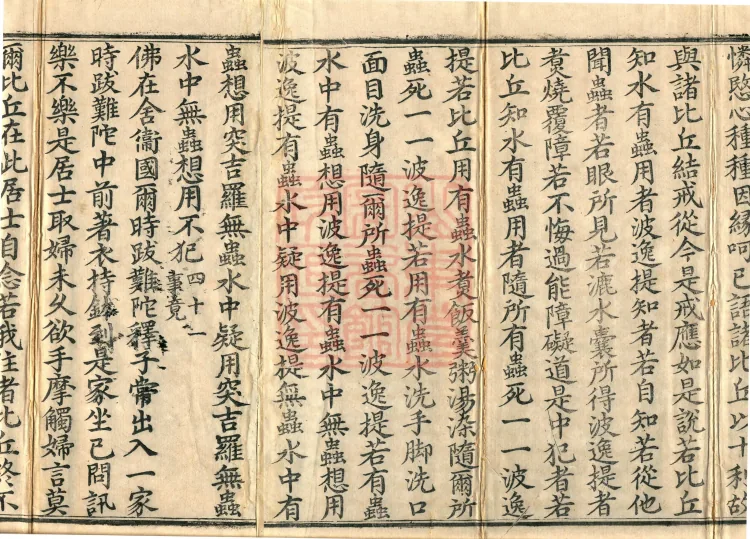 憐愍心種種因緣呵已語諸比丘以十利故
與諸比丘結戒從今是戒應如是說若比丘
知水有蟲用者波逸提知者若自知若從他
聞蟲者若眼所見若漉水囊所得波逸提者
煑燒覆障若不悔過能障礙道是中犯者若
比丘知水有蟲用者隨所有蟲死一一波逸
提若比丘用有蟲水煑飯羹粥湯染隨爾所
蟲死一一波逸提若用有蟲水洗手脚洗口
面目洗身隨爾所蟲死一一波逸提若有蟲
水中有蟲想用波逸提有蟲水中無蟲想用
波逸提有蟲水中疑用波逸提無蟲水中有
蟲想用突吉羅無蟲水中疑用突吉羅無蟲
水中無蟲想用不犯四十一事竟
佛在舍衞國爾時跋難陀釋子常出入一家
時跋難陀中前著衣持鉢到是家坐已問訊
樂不樂是居士取婦未久欲手摩觸婦言莫
爾比丘在此居士自念若我住者比丘終不